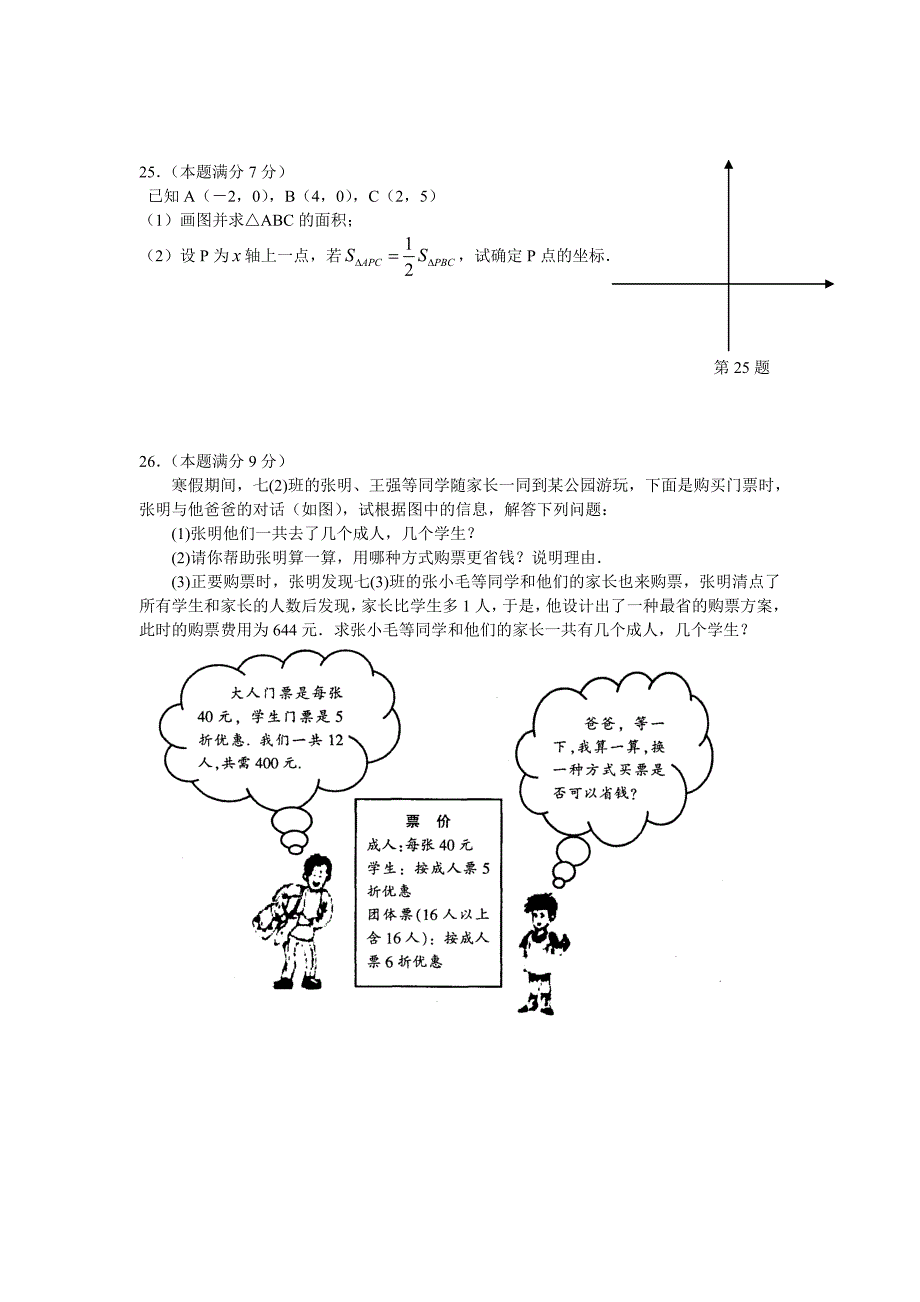 25．（本题满分 7 分）
已知 A（－2，0），B（4，0），C（2，5）
（1）画图并求△ABC 的面积；
（2）设 P 为 x 轴上一点，若 S△APC = 1/2 S△PBC，试确定 P 点的坐标．
第 25 题
26．（本题满分 9 分）
寒假期间，七(2)班的张明、王强等同学随家长一同到某公园游玩，下面是购买门票时，
张明与他爸爸的对话（如图），试根据图中的信息，解答下列问题：
(1)张明他们一共去了几个成人，几个学生？
(2)请你帮助张明算一算，用哪种方式购票更省钱？说明理由．
(3)正要购票时，张明发现七(3)班的张小毛等同学和他们的家长也来购票，张明清点了
所有学生和家长的人数后发现，家长比学生多 1 人，于是，他设计出了一种最省的购票方案，
此时的购票费用为 644 元．求张小毛等同学和他们的家长一共有几个成人，几个学生？
大人门票是每张
40 元，学生门票是 5
折优惠．我们一共 12
人，共需 400 元．
爸爸，等一
下，我算一算，换
一种方式买票是
否可以省钱？
票 价
成人：每张 40 元
学生：按成人票 5
折优惠
团体票(16 人以上
含 16 人)：按成人
票 6 折优惠